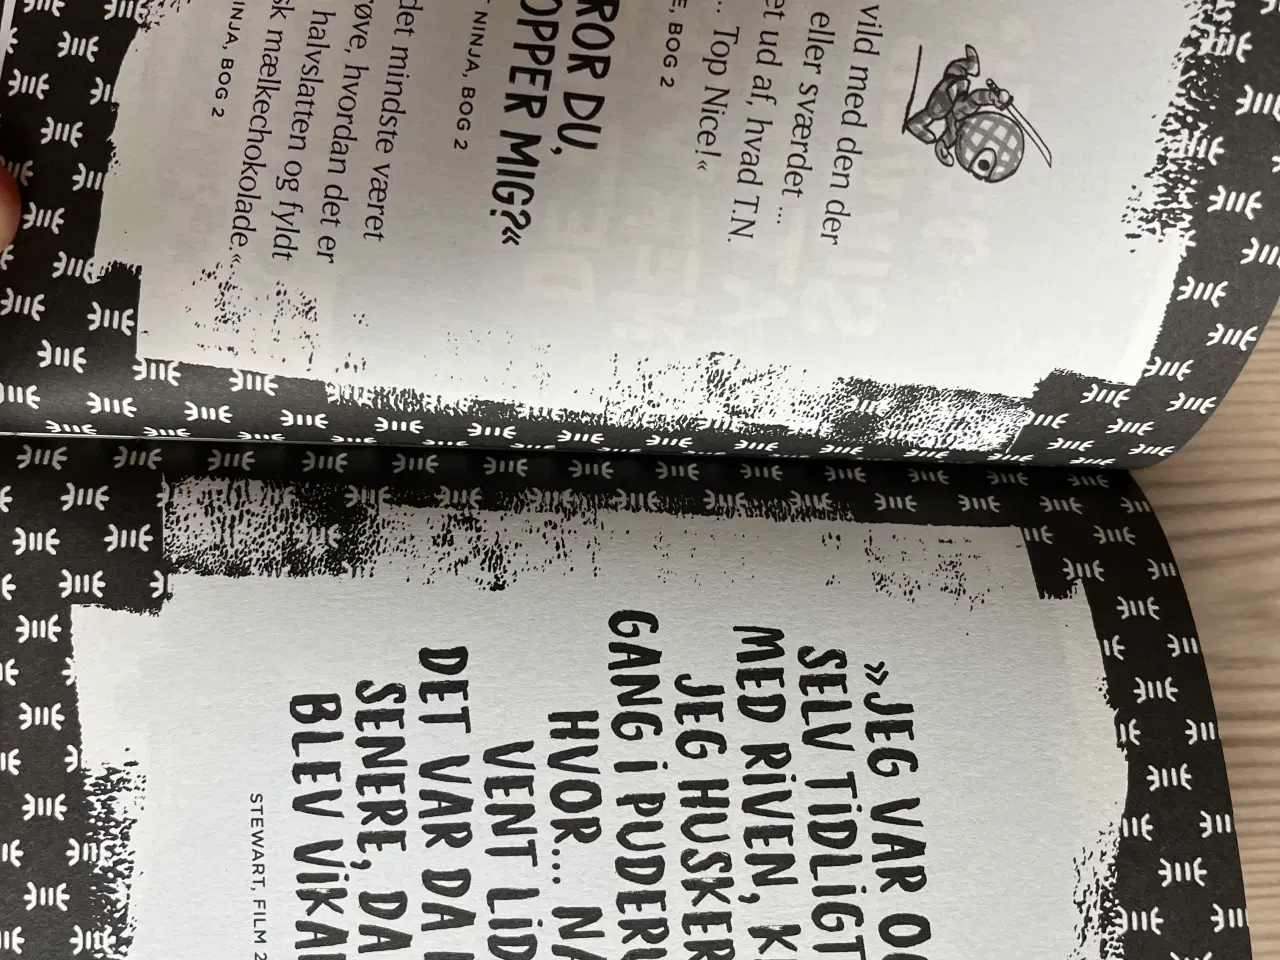 vild med den der
eller sværdet ...
et ud af, hvad T.N.
... Top Nice!«
E, BOG 2
ROR DU,
OPPER MIG?«
NINJA, BOG 2
det mindste været
øve, hvordan det er
halvslatten og fyldt
sk mælkechokolade.«
INJA, BOG 2
»JEG VAR OG
SELV TIDLIGT
MED RIVEN, K
JEG HUSKER
GANG I PUDERU
HVOR... NA
VENT LID
DET VAR DA
SENERE, DA
BLEV VIKA
STEWART, FILM 2